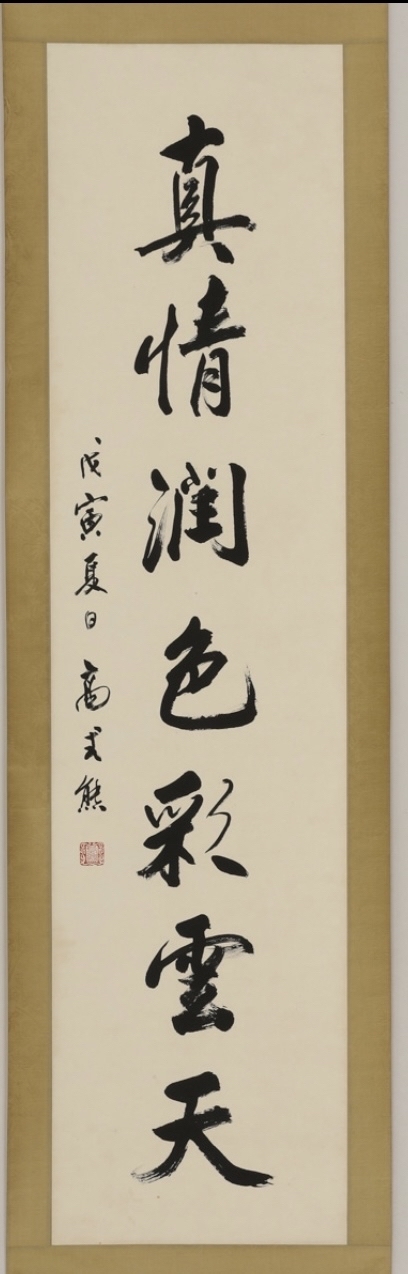 真情潤色彩雲天
戊寅夏日 高式熊